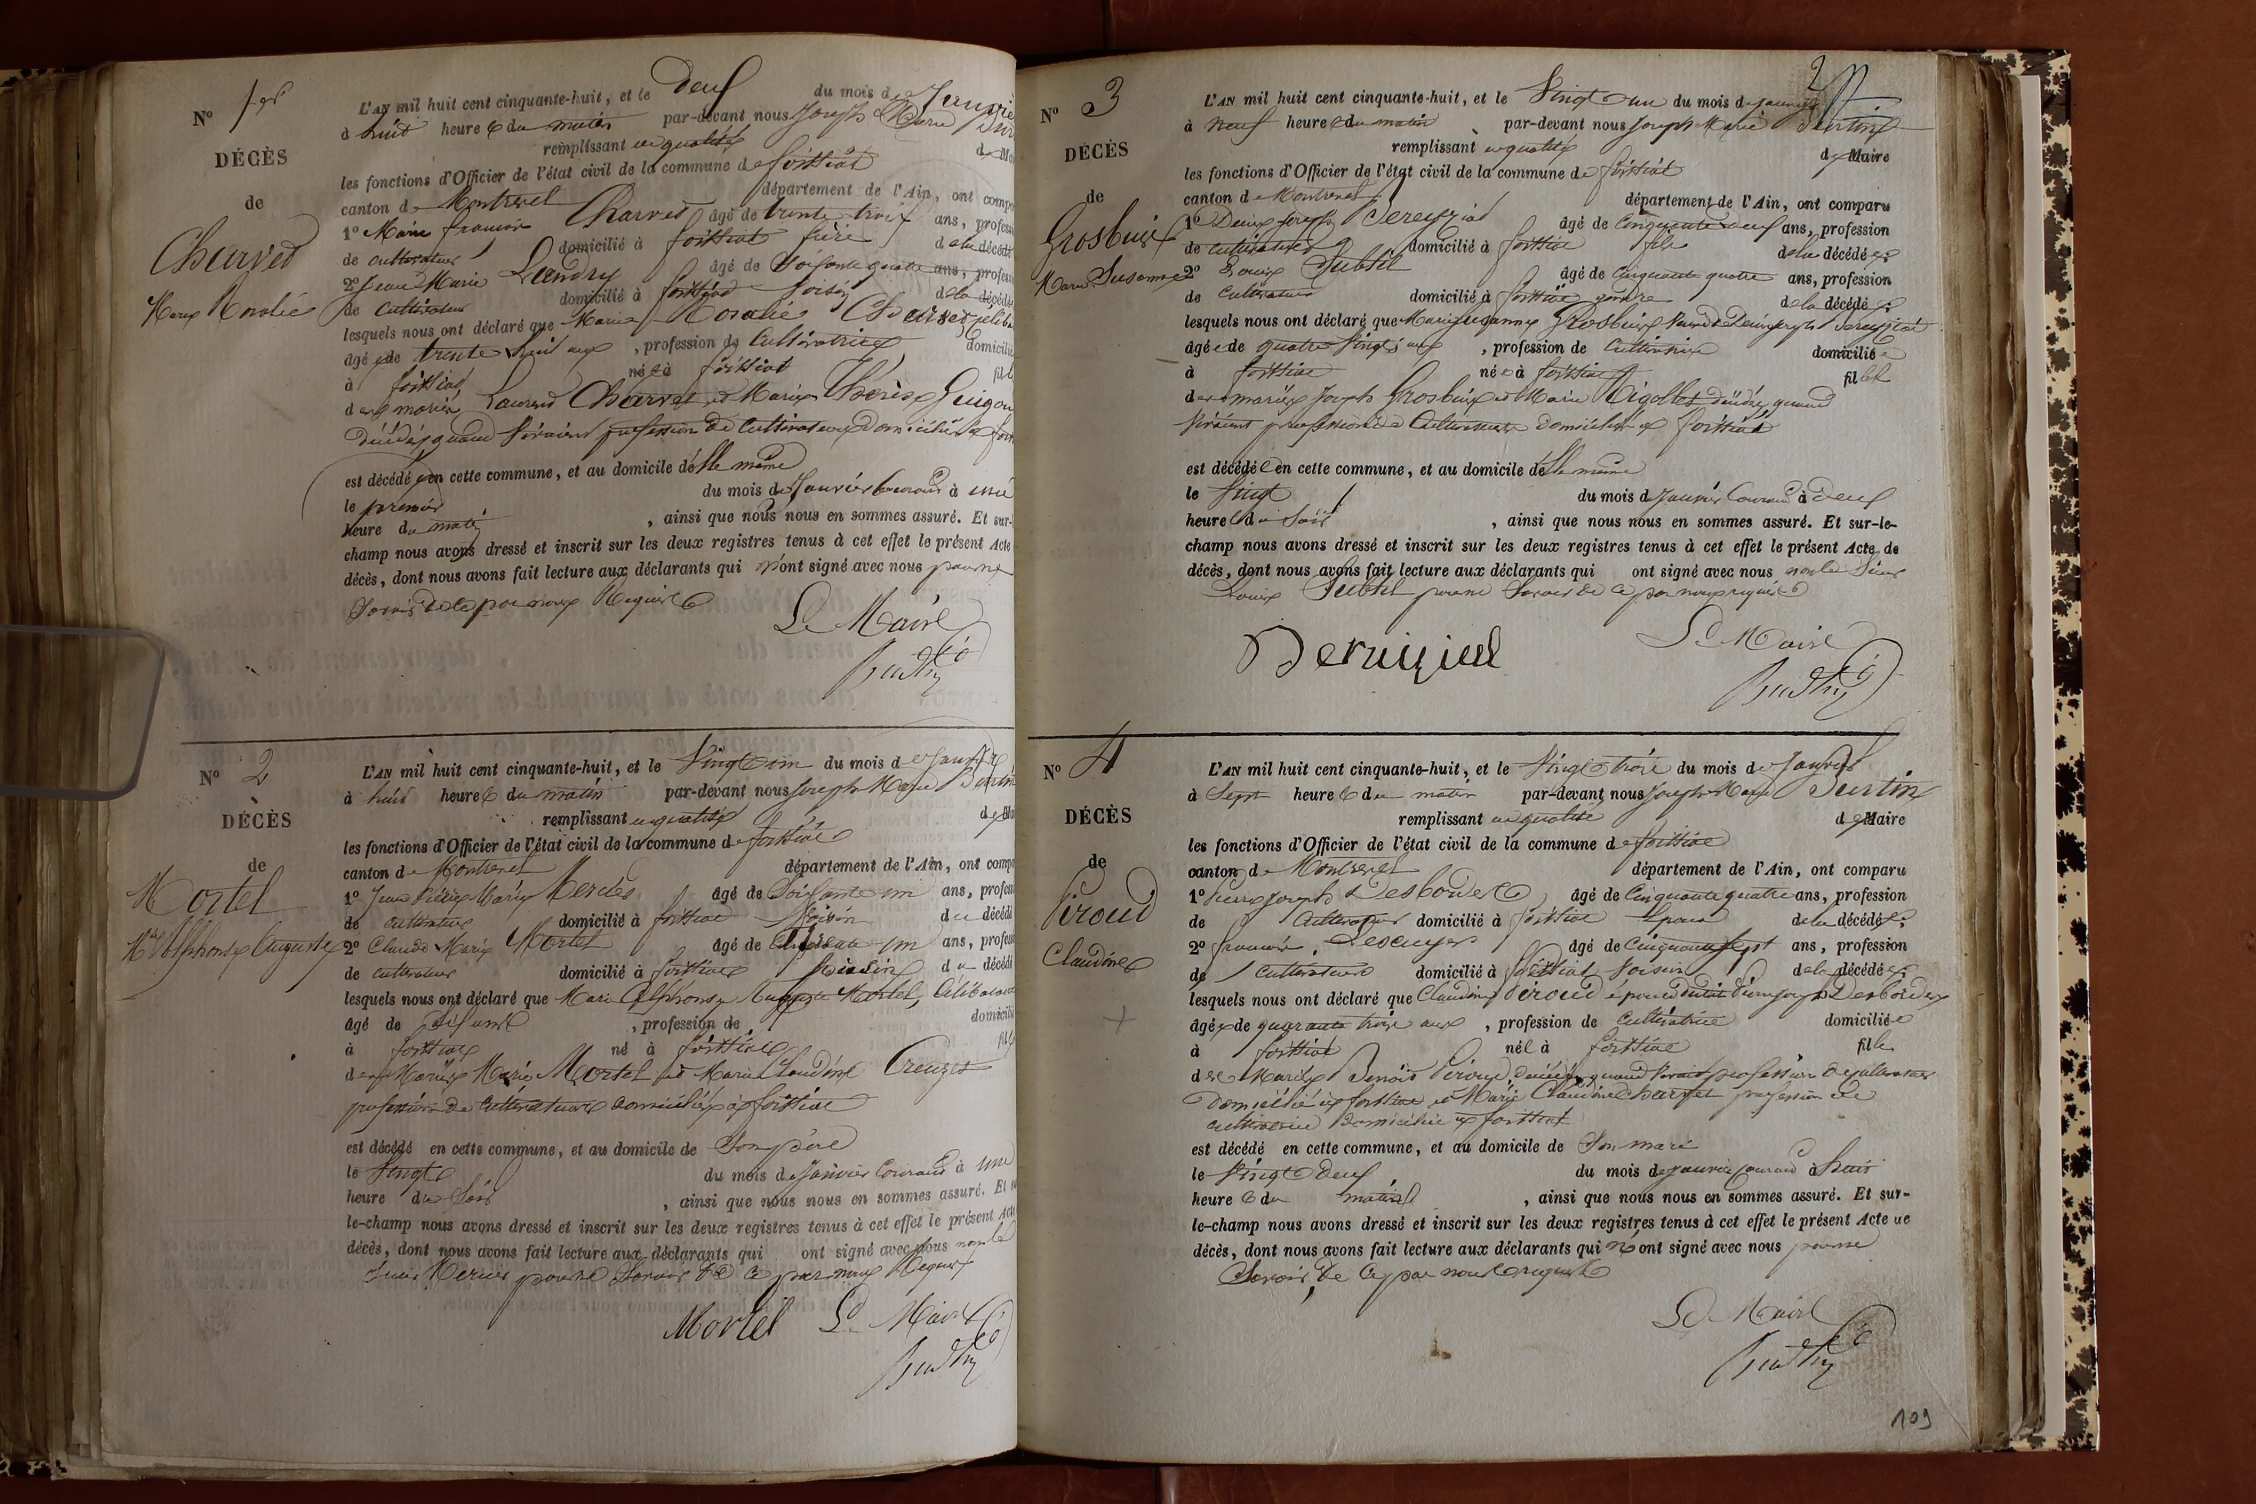 N° 1er
DÉCÈS
de
Charved
Marie Rosalie
L'AN mil huit cent cinquante-huit, et le deux du mois de Janvier
à huit heures du matin par-devant nous Joseph Marie
remplissant en qualité de
les fonctions d'Officier de l'état civil de la commune de foissiat
canton de Montrevel département de l'Ain, ont comparu
1° Marie françois Charved âgé de trente trois ans, profession
de cultivateur domicilié à foissiat frère de la décédée
2° Jean Marie Landry âgé de soixante quatre ans, profession
de cultivateur domicilié à foissiat voisin de la décédée
lesquels nous ont déclaré que Marie Rosalie Charved
âgée de trente huit ans, profession de Cultivatrice domicilié
à foissiat née à foissiat fille
des mariés Laurend Charved et Marie Thérèse
Décédés quand vivaient profession de cultivateurs domiciliés à
est décédée en cette commune, et au domicile d'elle même
le premier du mois de Janvier Courand à une
heure du matin, ainsi que nous nous en sommes assuré. Et sur-
champ nous avons dressé et inscrit sur les deux registres tenus à cet effet le présent Acte
décès, dont nous avons fait lecture aux déclarants qui n'ont signé avec nous pour ne
savoir de ce par nous Requis
Le Maire
N° 2
DÉCÈS
de
Mortel
Mie Alphonse Auguste
L'AN mil huit cent cinquante-huit, et le vingt un du mois de Janvier
à huit heures du matin par-devant nous Joseph Marie
remplissant en qualité de
les fonctions d'Officier de l'état civil de la commune de foissiat
canton de Montrevel département de l'Ain, ont comparu
1° Jean Pierre Marie Mercier âgé de soixante un ans, profession
de cultivateur domicilié à foissiat voisin du décédé
2° Claude Marie Mortel âgé de cinquante un ans, profession
de cultivateur domicilié à foissiat voisin du décédé
lesquels nous ont déclaré que Marie Alphonse Auguste Mortel, Célibataire
âgé de six ans, profession de domicilié
à foissiat né à foissiat fils
des Mariés Marie Mortel et Marie Claudine Creuzet
profession de Cultivateurs domiciliés à foissiat
est décédé en cette commune, et au domicile de son père
le vingt du mois de Janvier Courand à une
heure du soir, ainsi que nous nous en sommes assuré. Et
le-champ nous avons dressé et inscrit sur les deux registres tenus à cet effet le présent Acte
décès, dont nous avons fait lecture aux déclarants qui ont signé avec nous non le
Mercier pour ne savoir de ce par nous Requis
Mortel Le Maire
2
N° 3
DÉCÈS
de
Grosbuis
Marie Susanne
L'AN mil huit cent cinquante-huit, et le vingt un du mois de janvier
à neuf heures du matin par-devant nous Joseph Marie
remplissant en qualité de Maire
les fonctions d'Officier de l'état civil de la commune de foissiat
canton de Montrevel département de l'Ain, ont comparu
1° Denis Joseph âgé de cinquante deux ans, profession
de cultivateur domicilié à foissiat fils de la décédée
2° Louis Subtil âgé de cinquante quatre ans, profession
de cultivateur domicilié à foissiat gendre de la décédée
lesquels nous ont déclaré que Marie Susanne Grosbuis Veuve de Denis Joseph
âgée de quatre vingts ans, profession de Cultivatrice domiciliée
à foissiat née à foissiat fille
des mariés Joseph Grosbuis et Marie décédés quand
vivaient profession de Cultivateurs domiciliés à foissiat
est décédée en cette commune, et au domicile d'elle même
le vingt du mois de Janvier Courand à deux
heures du soir, ainsi que nous nous en sommes assuré. Et sur-le-
champ nous avons dressé et inscrit sur les deux registres tenus à cet effet le présent Acte de
décès, dont nous avons fait lecture aux déclarants qui ont signé avec nous non le sieur
Louis Subtil pour ne savoir de ce par nous requis
Le Maire
N° 4
DÉCÈS
de
Piroud
Claudine
L'AN mil huit cent cinquante-huit, et le vingt trois du mois de Janvier
à sept heures du matin par-devant nous Joseph Marie
remplissant en qualité de Maire
les fonctions d'Officier de l'état civil de la commune de foissiat
canton de Montrevel département de l'Ain, ont comparu
1° Pierre Joseph Desbordes âgé de cinquante quatre ans, profession
de cultivateur domicilié à foissiat époux de la décédée
2° françois âgé de cinquante sept ans, profession
de cultivateur domicilié à foissiat voisin de la décédée
lesquels nous ont déclaré que Claudine Piroud épouse dudit Pierre Joseph Desbordes
âgée de quarante trois ans, profession de cultivatrice domiciliée
à foissiat née à foissiat fille
des Mariés Benoit Piroud, décédé quand vivait profession de cultivateur
Domicilié à foissiat et Marie Claudine Charvet profession de
cultivatrice Domiciliée à foissiat
est décédé en cette commune, et au domicile de son mari
le vingt deux du mois de janvier Courand à huit
heures du matin, ainsi que nous nous en sommes assuré. Et sur-
le-champ nous avons dressé et inscrit sur les deux registres tenus à cet effet le présent Acte de
décès, dont nous avons fait lecture aux déclarants qui n'ont signé avec nous pour ne
savoir de ce par nous requis
Le Maire
109